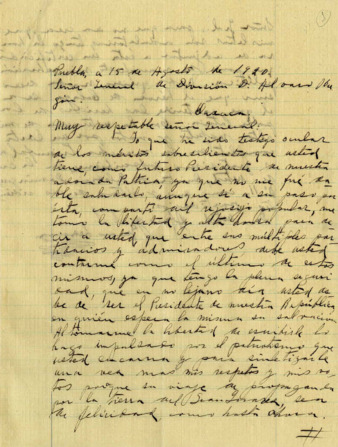 Puebla, a 15 de Agosto de 1920.
Señor General de División D. Alvaro Obre
gón.
Oaxaca.
Muy respetable señor General:
Yo que he sido testigo ocular
de los méritos sobresalientes que usted
tiene como futuro Presidente de nuestra
adorada Patria, ya que no me fué da
ble saludarlo, aunque sí a su paso por
ésta, compartí del regocijo popular, me
tomo la libertad y alta honra para de
cir a usted, que entre sus múltiples par
tidarios y admiradores debe usted
contarme como el último de estos
mismos, ya que tengo la plena seguri
dad, que en no lejano día usted de
be de ser el Presidente de nuestra República
en quién espera la misma su salvación
Al tomarme la libertad de escribirle lo
hago impulsado por el patriotismo que
usted encarna y para sintetizarle
una vez mas mis respetos y mis vo
tos porque su viaje de propaganda
por la tierra del Benemérito, sea
de felicidad como hasta ahora.